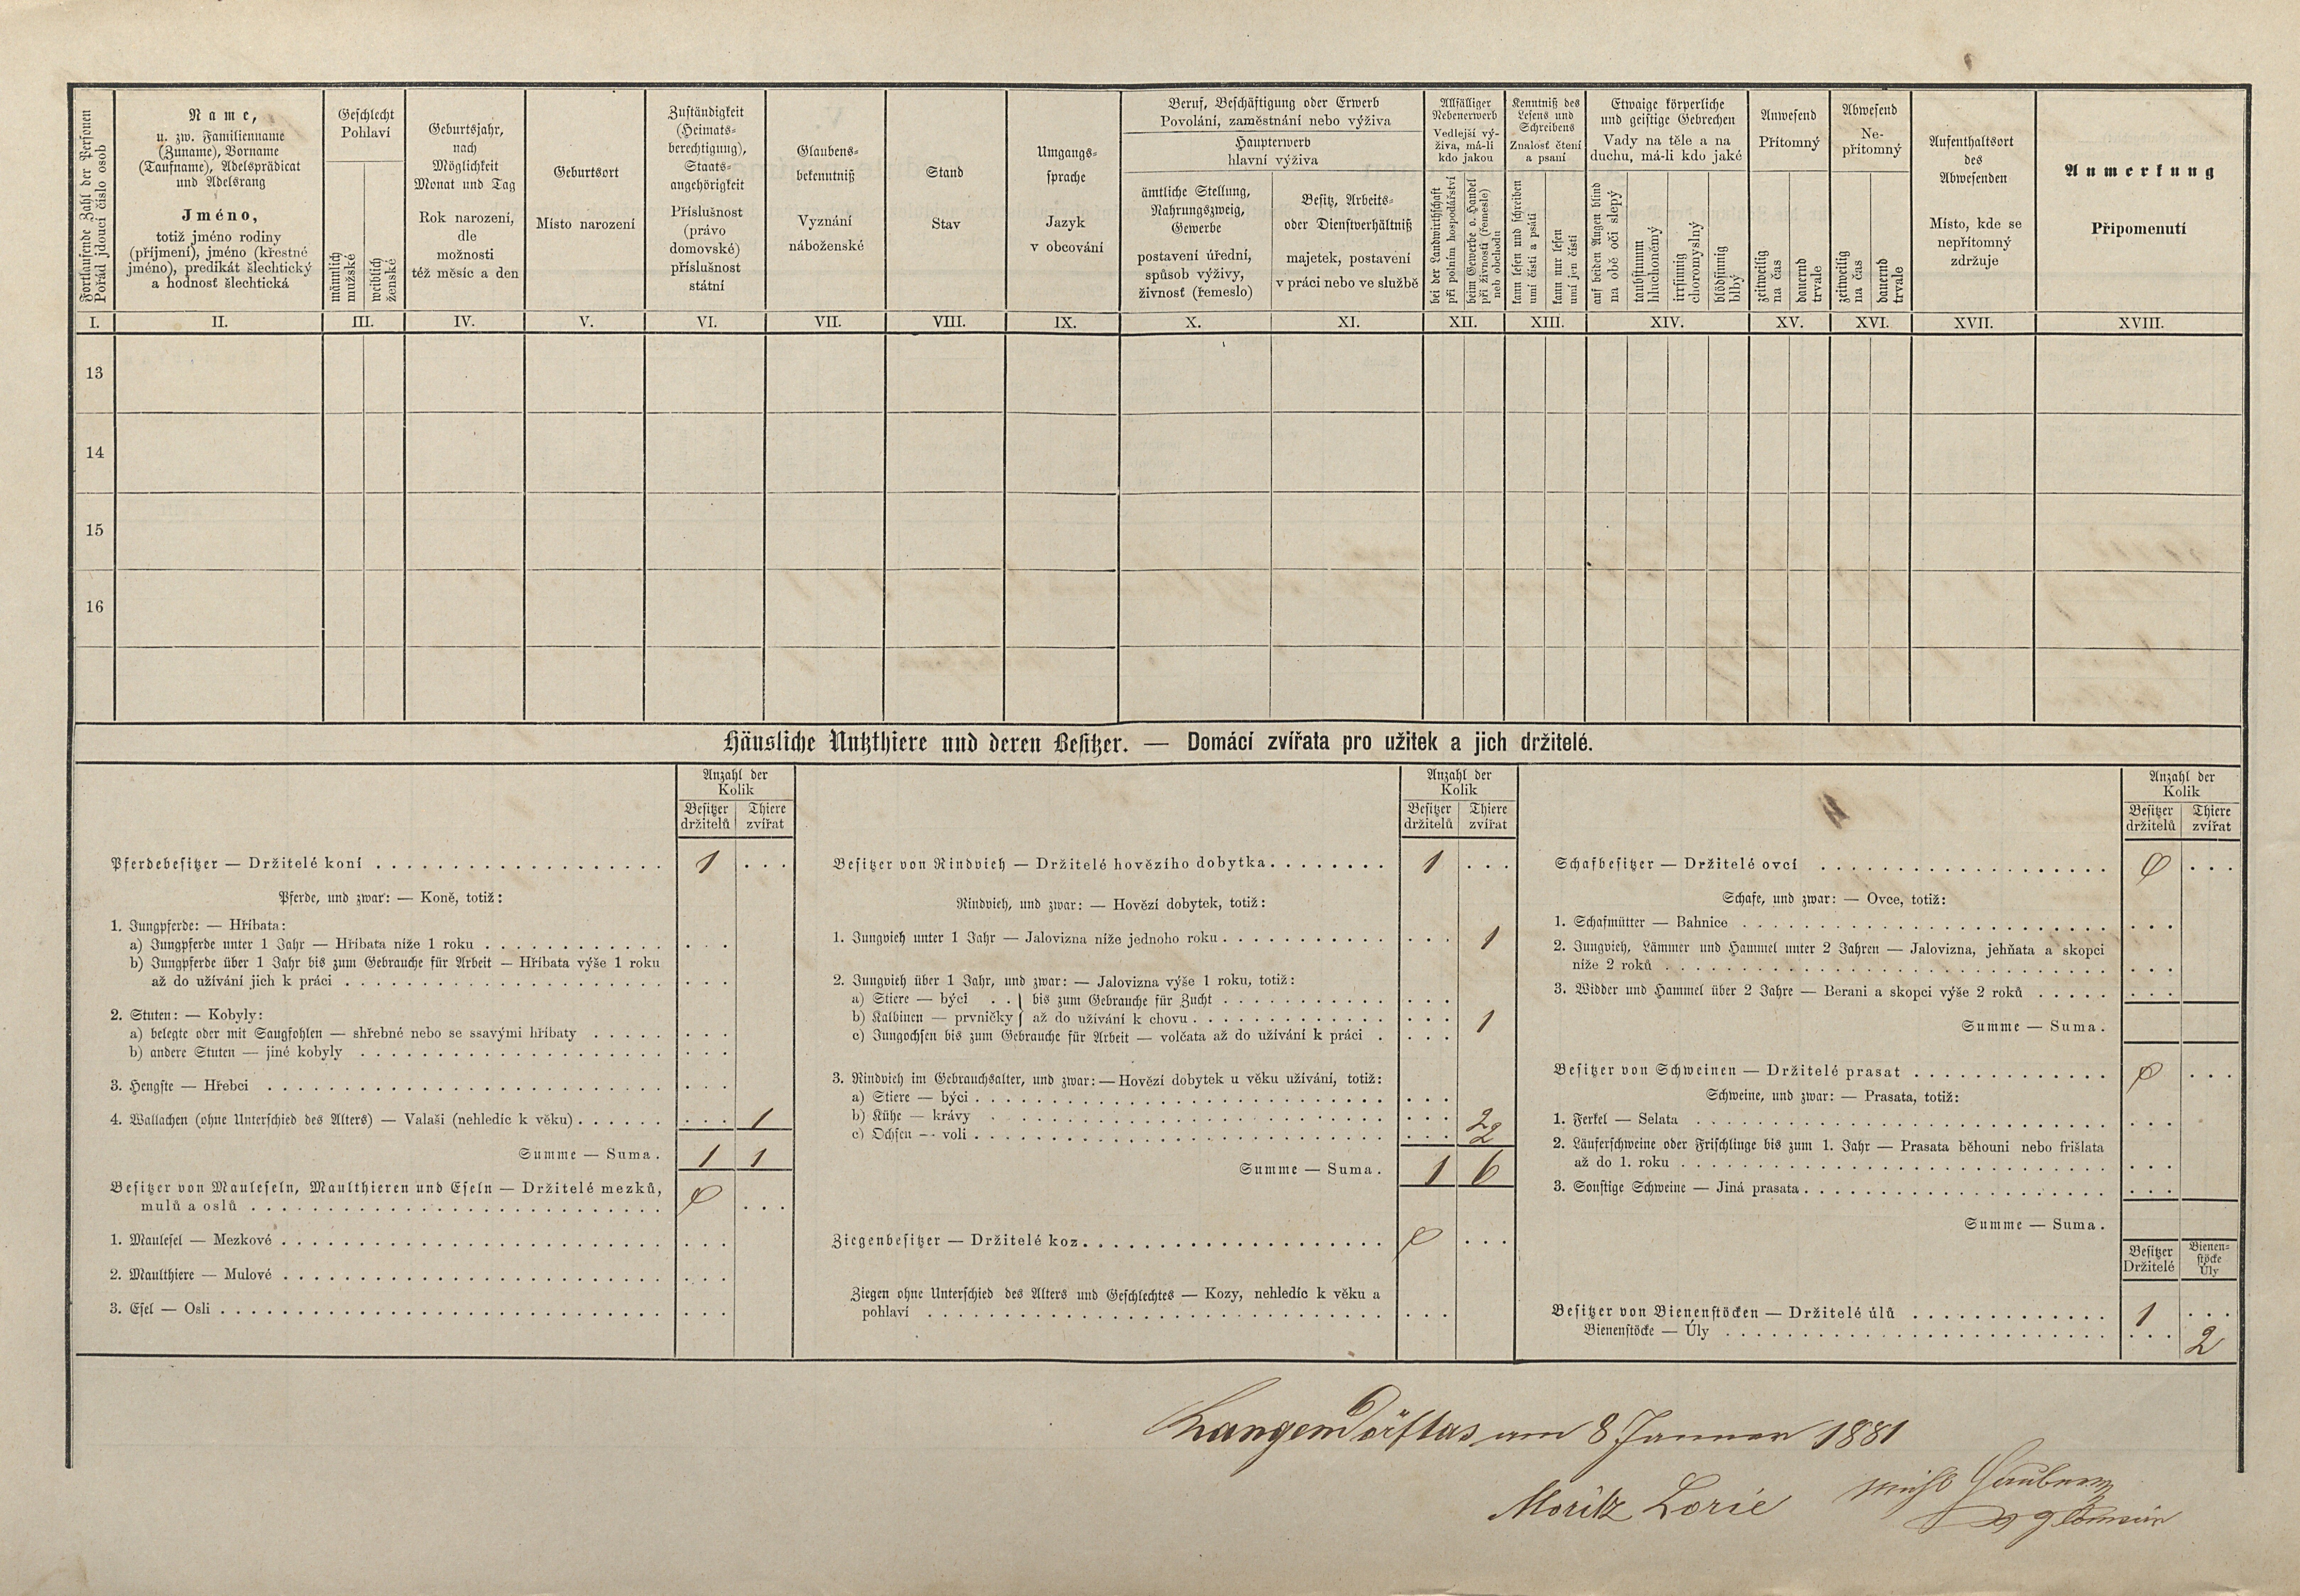 Fortlaufende Zahl der Personen
Pořád jdoucí číslo osob
Name,
u. zw. Familienname
(Zuname), Vorname
(Taufname), Adelsprädicat
und Adelsrang
Jméno,
totiž jméno rodiny
(příjmení), jméno (křestné
jméno), predikát šlechtický
a hodnosť šlechtická
Geschlecht
Pohlaví
männlich
mužské
weiblich
ženské
Geburtsjahr,
nach
Möglichkeit
Monat und Tag
Rok narození,
dle
možnosti
též měsíc a den
Geburtsort
Místo narození
Zuständigkeit
(Heimats-
berechtigung),
Staats-
angehörigkeit
Příslušnost
(právo
domovské)
příslušnost
státní
Glaubens-
bekenntniß
Vyznání
náboženské
Stand
Stav
Umgangs-
sprache
Jazyk
v obcování
Beruf, Beschäftigung oder Erwerb
Povolání, zaměstnání nebo výživa
Haupterwerb
hlavní výživa
ämtliche Stellung,
Nahrungszweig,
Gewerbe
postavení úřední,
spůsob výživy,
živnosť (řemeslo)
Besitz, Arbeits-
oder Dienstverhältniß
majetek, postavení
v práci nebo ve službě
Allfälliger
Nebenerwerb
Vedlejší vý-
živa, má-li
kdo jakou
bei der Landwirthschaft
při polním hospodářství
beim Gewerbe o. Handel
při živnosti (řemesle)
neb obchodu
Kenntniß des
Lesens und
Schreibens
Znalosť čtení
a psaní
kann lesen und schreiben
umí čísti a psáti
kann nur lesen
umí jen čísti
Etwaige körperliche
und geistige Gebrechen
Vady na těle a na
duchu, má-li kdo jaké
auf beiden Augen blind
na obě oči slepý
taubstumm
hluchoněmý
irrsinnig
choromyslný
blödsinnig
blbý
Anwesend
Přítomný
zeitweilig
na čas
dauernd
trvale
Abwesend
Ne-
přítomný
zeitweilig
na čas
dauernd
trvale
Aufenthaltsort
des
Abwesenden
Místo, kde se
nepřítomný
zdržuje
Anmerkung
Připomenutí
I. II. III. IV. V. VI. VII. VIII. IX. X. XI. XII. XIII. XIV. XV. XVI. XVII. XVIII.
13
14
15
16
Häusliche Nutzthiere und deren Besitzer. — Domácí zvířata pro užitek a jich držitelé.
Anzahl der
Kolik
Besitzer Thiere
držitelů zvířat
Pferdebesitzer — Držitelé koní 1
Pferde, und zwar: — Koně, totiž:
1. Jungpferde: — Hříbata:
a) Jungpferde unter 1 Jahr — Hříbata níže 1 roku
b) Jungpferde über 1 Jahr bis zum Gebrauche für Arbeit — Hříbata výše 1 roku
až do užívání jich k práci
2. Stuten: — Kobyly:
a) belegte oder mit Saugfohlen — shřebné nebo se ssavými hříbaty
b) andere Stuten — jiné kobyly
3. Hengste — Hřebci
4. Wallachen (ohne Unterschied des Alters) — Valaši (nehledíc k věku) 1
Summe — Suma. 1 1
Besitzer von Mauleseln, Maulthieren und Eseln — Držitelé mezků,
mulů a oslů 0
1. Maulesel — Mezkové
2. Maulthiere — Mulové
3. Esel — Osli
Anzahl der
Kolik
Besitzer Thiere
držitelů zvířat
Besitzer von Rindvieh — Držitelé hovězího dobytka 1
Rindvieh, und zwar: — Hovězí dobytek, totiž:
1. Jungvieh unter 1 Jahr — Jalovizna níže jednoho roku 1
2. Jungvieh über 1 Jahr, und zwar: — Jalovizna výše 1 roku, totiž:
a) Stiere — býci . . } bis zum Gebrauche für Zucht
b) Kalbinen — prvničky } až do užívání k chovu 1
c) Jungochsen bis zum Gebrauche für Arbeit — volčata až do užívání k práci
3. Rindvieh im Gebrauchsalter, und zwar: — Hovězí dobytek u věku užívání, totiž:
a) Stiere — býci
b) Kühe — krávy 2
c) Ochsen — voli 2
Summe — Suma. 1 6
Ziegenbesitzer — Držitelé koz 0
Ziegen ohne Unterschied des Alters und Geschlechtes — Kozy, nehledíc k věku a
pohlaví
Anzahl der
Kolik
Besitzer Thiere
držitelů zvířat
Schafbesitzer — Držitelé ovcí 0
Schafe, und zwar: — Ovce, totiž:
1. Schafmütter — Bahnice
2. Jungvieh, Lämmer und Hammel unter 2 Jahren — Jalovizna, jehňata a skopci
níže 2 roků
3. Widder und Hammel über 2 Jahre — Berani a skopci výše 2 roků
Summe — Suma.
Besitzer von Schweinen — Držitelé prasat 0
Schweine, und zwar: — Prasata, totiž:
1. Ferkel — Selata
2. Läuferschweine oder Frischlinge bis zum 1. Jahr — Prasata běhouni nebo frišlata
až do 1. roku
3. Sonstige Schweine — Jiná prasata
Summe — Suma.
Besitzer Bienen-
Držitelé stöcke
Úly
Besitzer von Bienenstöcken — Držitelé úlů 1
Bienenstöcke — Úly 2
am 8 Januar 1881
Moritz Lorie